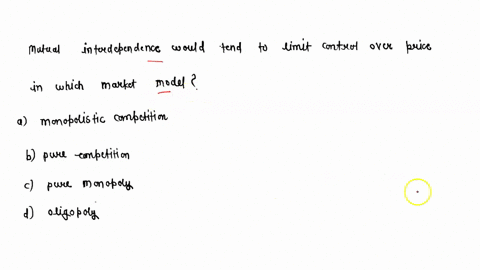 Mutual interdependence would tend to limit control over price
in which market model?
a) monopolistic competition
b) pure competition
c) pure monopoly
d) oligopoly